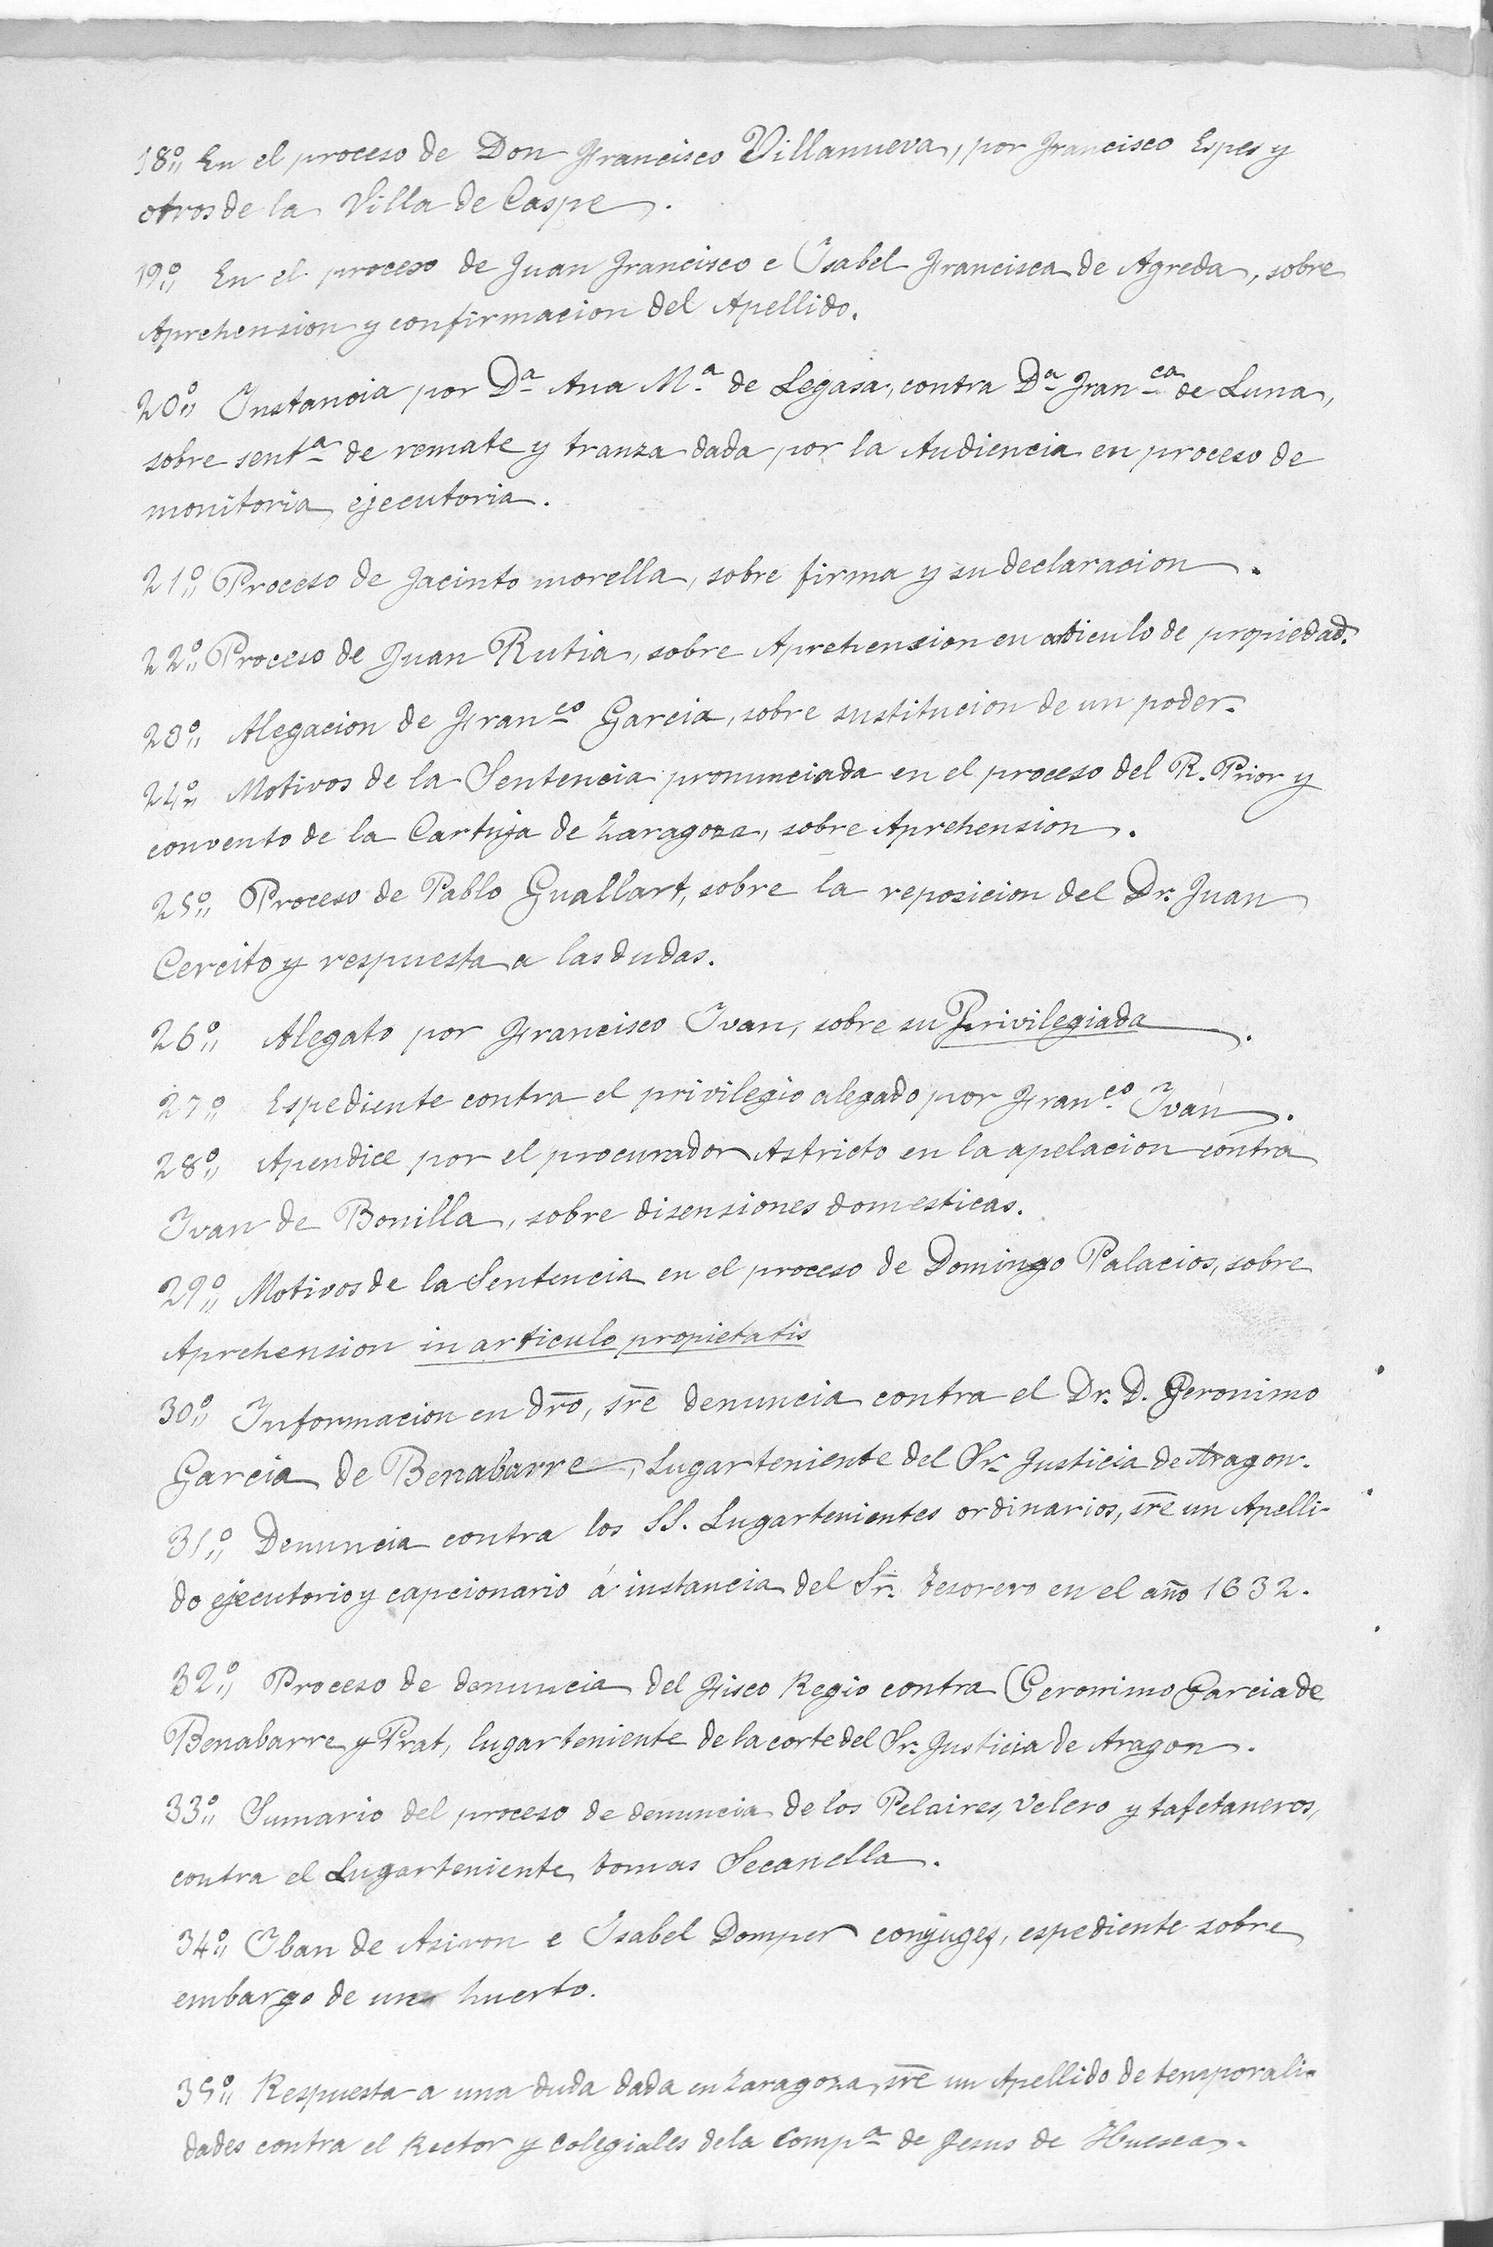 18º,, En el proceso de Don Francisco Villanueva, por Francisco Espes y
otros de la Villa de Caspe.
19º,, En el proceso de Juan Francisco e Isabel Francisca de Agreda, sobre
Aprehension y confirmacion del Apellido.
20º,, Instancia por Dª Ana Mª de Legasa, contra Dª Franca de Luna,
sobre sentª de remate y tranza dada por la Audiencia en proceso de
monitoria ejecutoria.
21º,, Proceso de Jacinto morella, sobre firma y su declaracion.
22º,, Proceso de Juan Rutia, sobre Aprehension en aticulo de propiedad.
23º,, Alegacion de Franco Garcia, sobre sustitucion de un poder.
24º,, Motivos de la Sentencia pronunciada en el proceso del R. Prior y
convento de la Cartuja de Zaragoza, sobre Aprehension.
25º,, Proceso de Pablo Guallart, sobre la reposicion del Dr. Juan
Cercito y respuesta a las dudas.
26º,, Alegato por Francisco Ivan, sobre su Privilegiada.
27º,, Espediente contra el privilegio alegado por Franco Iván.
28º,, Apendice por el procurador Astricto en la apelacion contra
Ivan de Bonilla, sobre disensiones domesticas.
29º,, Motivos de la Sentencia en el proceso de Domingo Palacios, sobre
Aprehension in articulo propietatis
30º,, Informacion en dr̄o, sr̄e denuncia contra el Dr. D. Geronimo
Garcia de Benabarre, Lugarteniente del Sr. Justicia de Aragon.
31º,, Denuncia contra los SS. Lugartenientes ordinarios, sr̄e un Apelli-
do ejecutorio y capcionario á instancia del Sr. tesorero en el año 1632.
32º,, Proceso de denuncia del Fisco Regio contra Geronimo Garcia de
Benabarre y Prat, lugarteniente de la corte del Sr. Justicia de Aragon.
33º,, Sumario del proceso de denuncia de los Pelaires, Velero y tafetaneros,
contra el Lugarteniente tomas Secanella.
34º,, Iban de Asiron e Isabel Domper conjuges, espediente sobre
embargo de un huerto.
35º,, Respuesta a una duda dada en Zaragoza, sr̄e un Apellido de temporali-
dades contra el Rector y Colegiales de la Compª de Jesus de Huesca.